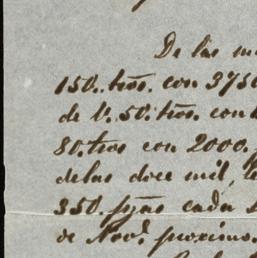 De las
150. trõs. con 3750
de V. 50. trõs. con
80. tros con 2000.
delas doce mil,
350. pzas cada
de Nov.e proximo.